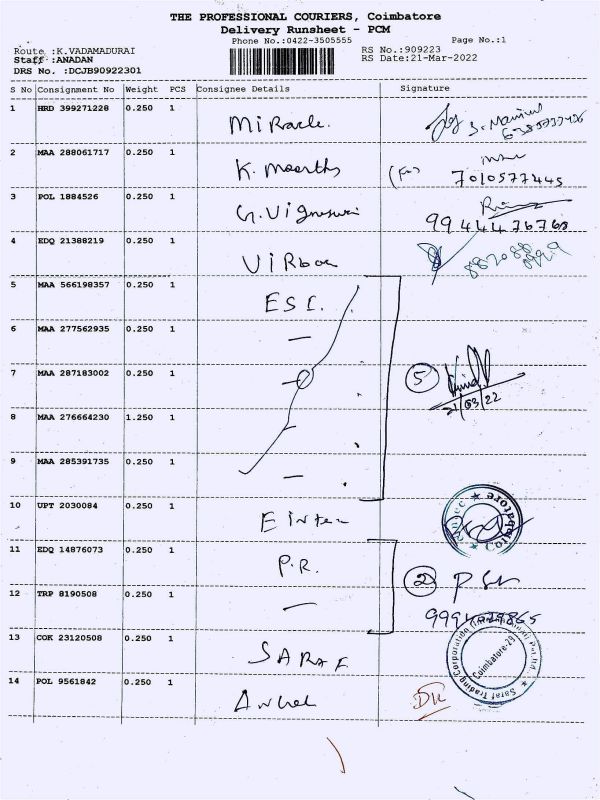 THE PROFESSIONAL COURIERS, Coimbatore
Delivery Runsheet - PCM
Phone No.:0422-3505555 Page No.:1
Route :K.VADAMADURAI RS No.:909223
Staff :ANADAN RS Date:21-Mar-2022
DRS No. :DCJB90922301
S No Consignment No Weight PCS Consignee Details Signature
1 HRD 399271228 0.250 1 Miracle.
2 MAA 288061717 0.250 1 K. Moorthy 7010577445
3 POL 1884526 0.250 1 G. Vigneswari 9944476768
4 EDQ 21388219 0.250 1
5 MAA 566198357 0.250 1 ESI.
6 MAA 277562935 0.250 1 —
7 MAA 287183002 0.250 1 — 5 21/03/22
8 MAA 276664230 1.250 1 —
9 MAA 285391735 0.250 1 —
10 UPT 2030084 0.250 1 Coimbatore
11 EDQ 14876073 0.250 1 P.R. 2
12 TRP 8190508 0.250 1 —
13 COK 23120508 0.250 1 SARAF Saraf Trading Corporation Pvt Ltd. Coimbatore-29
14 POL 9561842 0.250 1